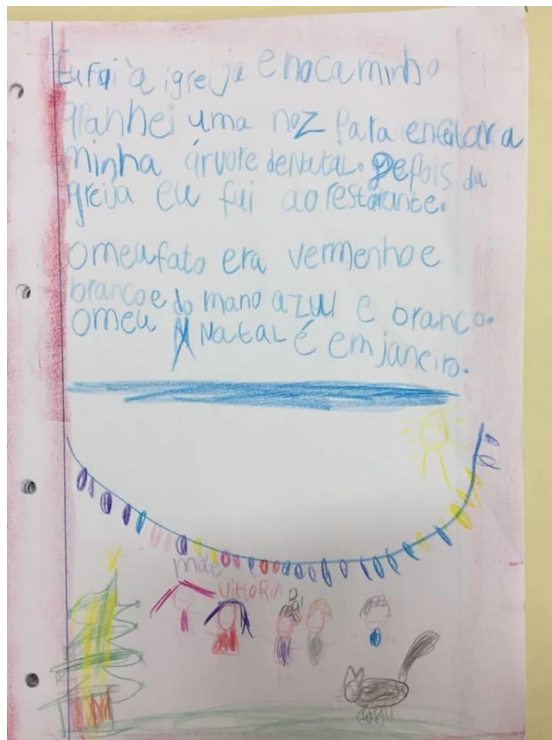 Eu fui à igreija e no caminho
apanhei uma noz Para enfeitar a
minha árvore de Natal. Depois da
igreija eu fui ao restarante.
O meu fato era vermenho e
branco e do mano azul e branco.
O meu Natal é em janeiro.
mãe
VittoRia